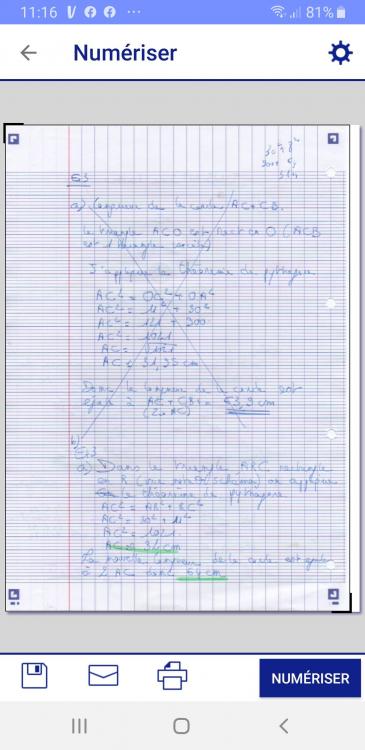 11:16 81%
Numériser
30² + 8²
900 +
E3
a) Longueur de la corde AC + CB.
le triangle ACO est rect en O (ACB
est 1 triangle isocèle)
J'applique le théorème de pythagore
AC² = OC² + OA²
AC² = 11² + 30²
AC² = 121 + 900
AC² = 1021
AC = √1021
AC ≈ 31,95 cm
Donc la longueur de la corde est
égale à AC + CB = 63,9 cm
(2 × AC)
b)
E3
a) Dans le triangle ABC rectangle
en R (voir schéma) on applique
le théorème de pythagore
AC² = AR² + RC²
AC² = 30² + 11²
AC² = 1021.
AC ≈ 32 cm
La nouvelle longueur de la corde est égale
à 2 AC donc 64 cm
NUMÉRISER